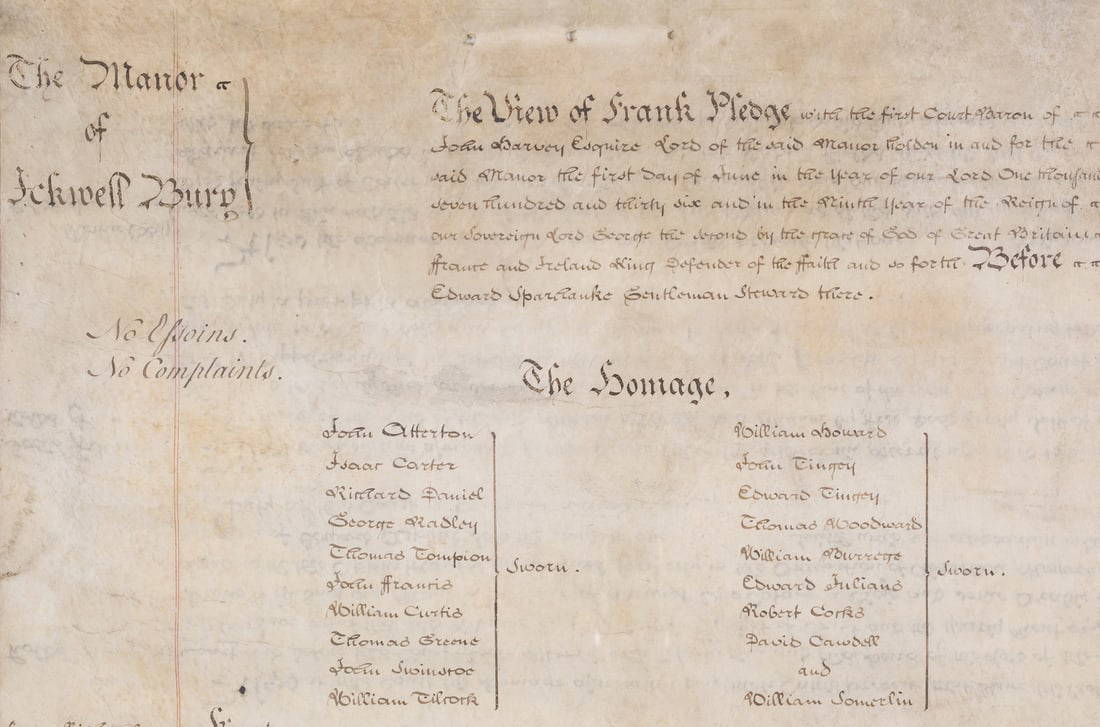 The Manor
of
Ickwell Bury
The View of Frank Pledge with the first Court Baron of
John Harvey Esquire Lord of the said Manor holden in and for the
said Manor the first day of June in the Year of our Lord One thousand
seven hundred and thirty six and in the Ninth Year of the Reign of
our Sovereign Lord George the second by the grace of God of Great Britain
ffrance and Ireland King Defender of the ffaith and so forth Before
Edward Sparhauke Gentleman Steward there.
No Essoins.
No Complaints.
The Homage.
John Atterton
Isaac Carter
Richard Daniel
George Radley
Thomas Tompion
John ffrancis
William Curtis
Thomas Greene
John Swinstoe
William Tilcock
Sworn.
William Howard
John Tingey
Edward Tingey
Thomas Woodward
William Burrege
Edward Julians
Robert Cocks
David Cawdell
and
William Somerlin
Sworn.